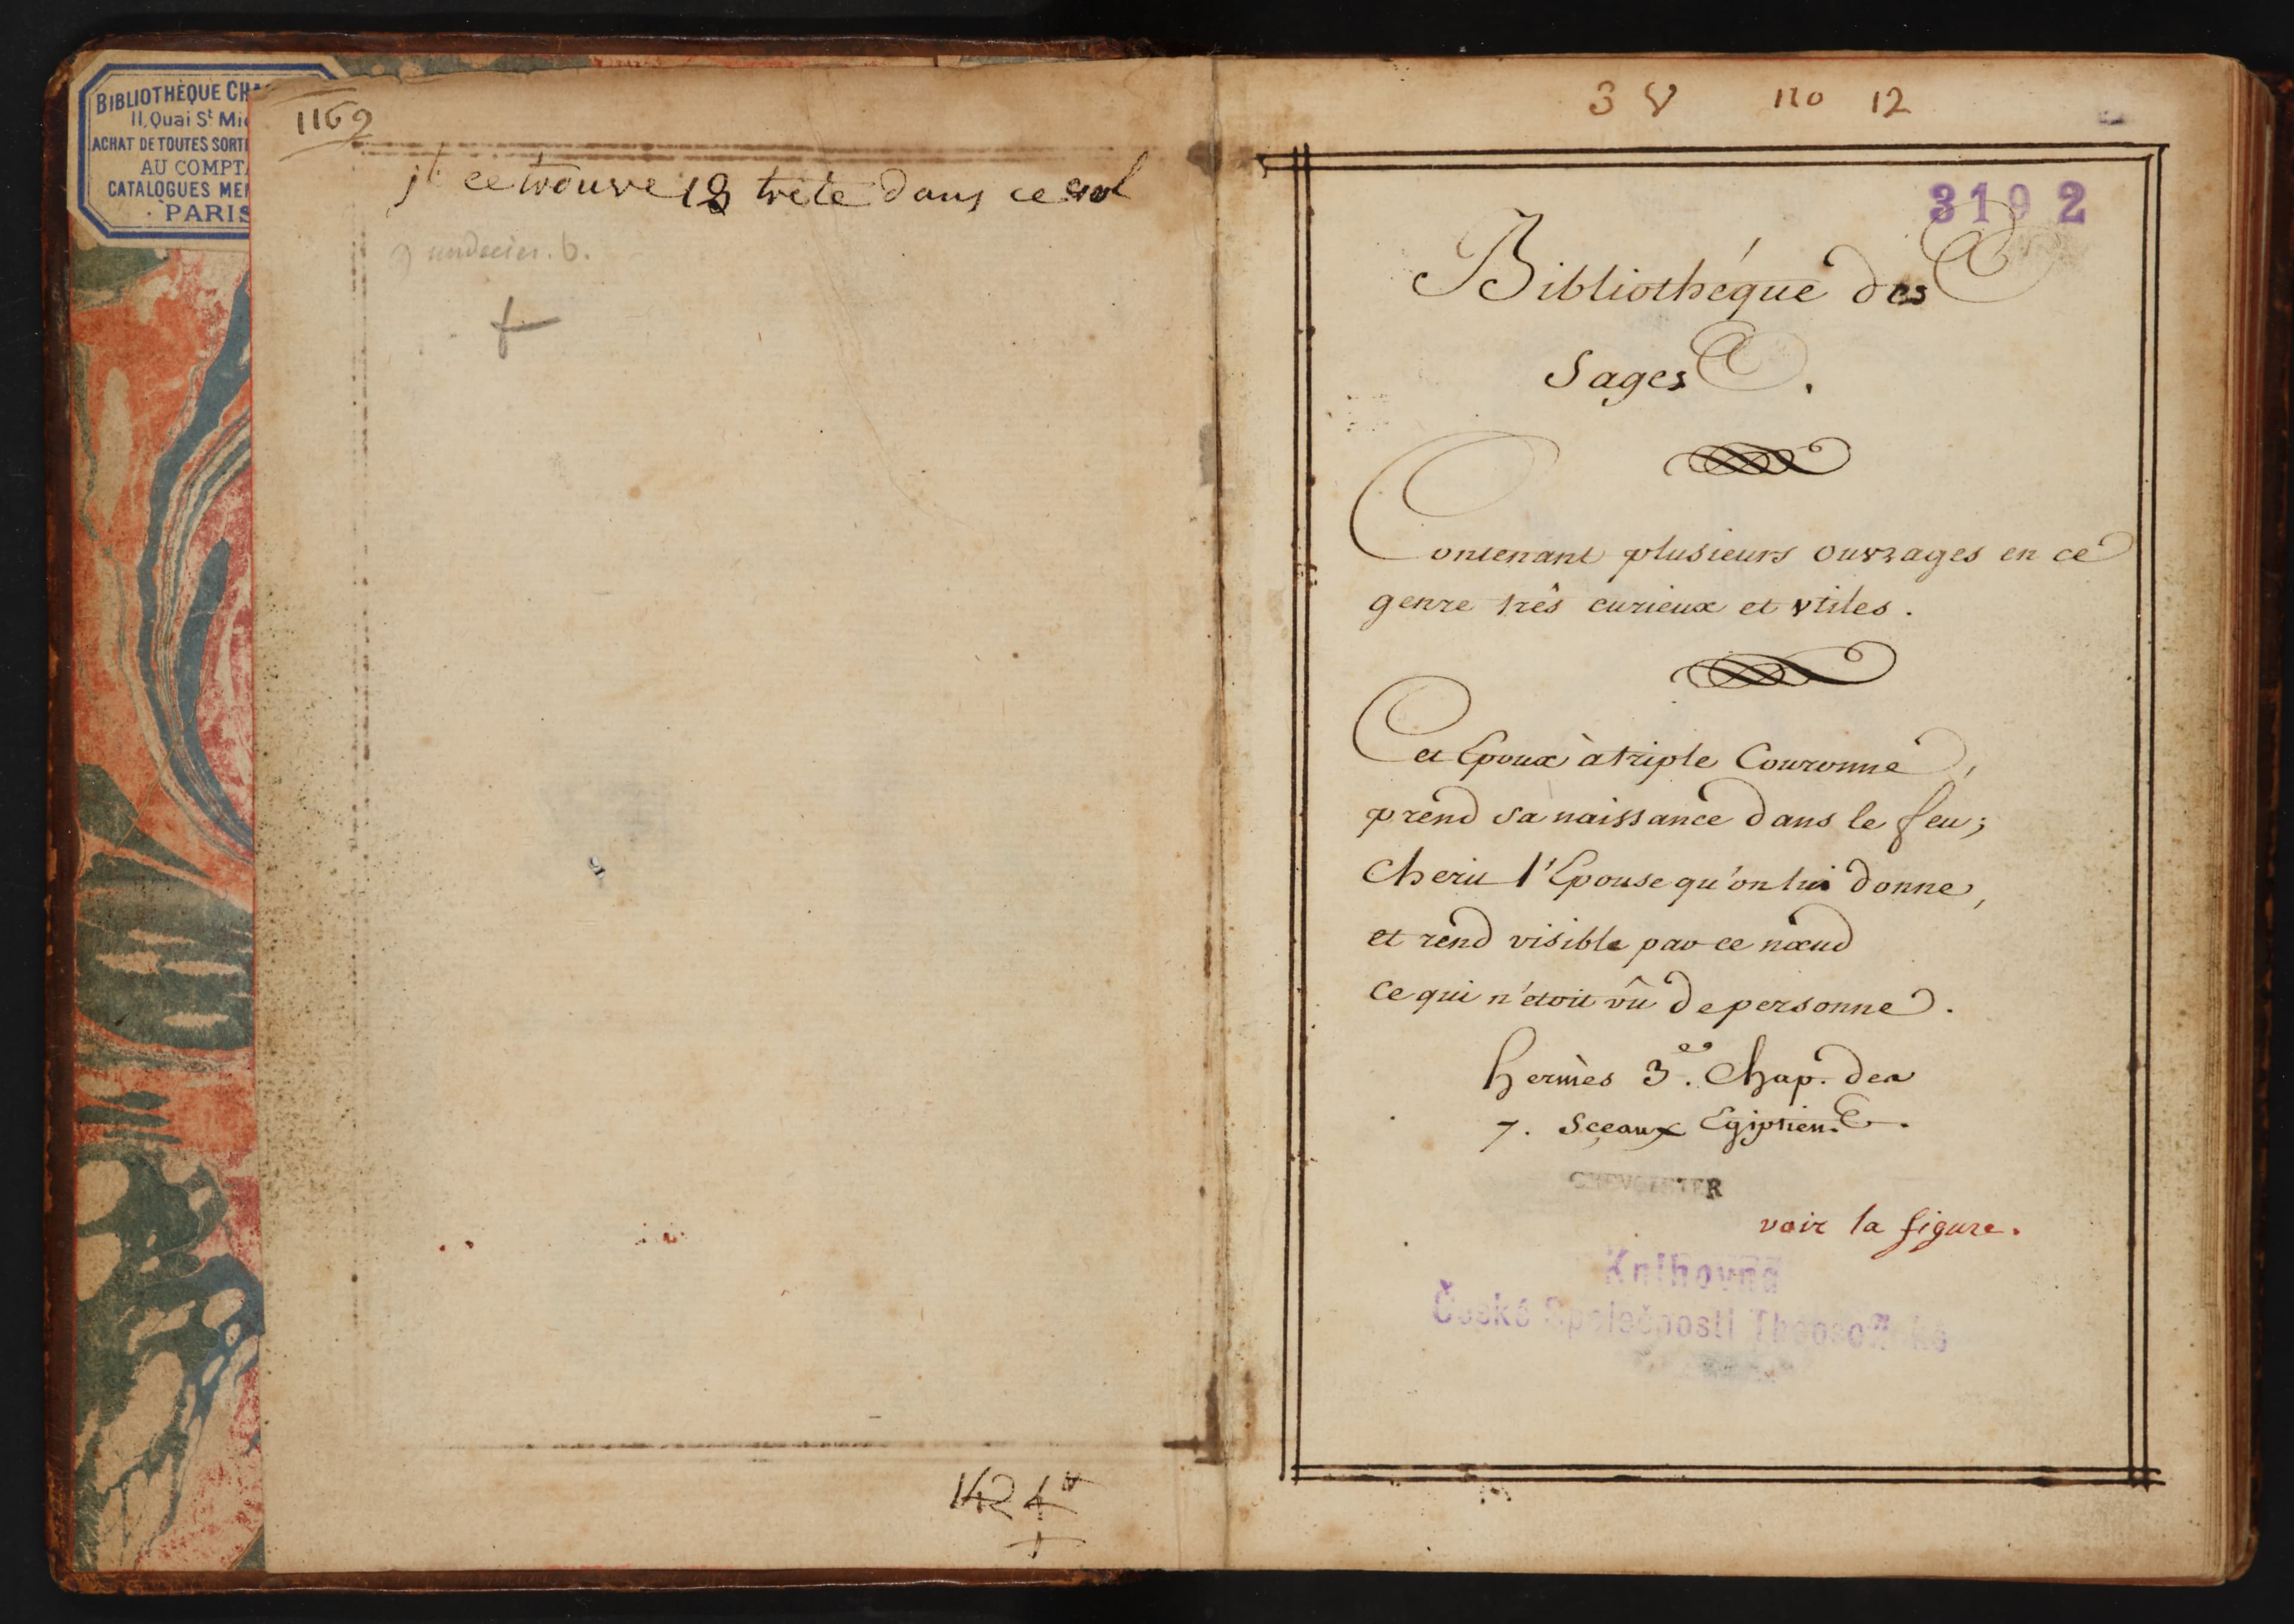 BIBLIOTHÈQUE CH
11, Quai St Mi
ACHAT DE TOUTES SORT
AU COMPT
CATALOGUES ME
PARIS
1169
jl ce trouve 18 trete dans ce vol
142 4
3 8 no 12
3192
Bibliothéque des
Sages.
Contenant plusieurs ouvrages en ce
genre três curieux et vtiles.
Cet Epoux à triple Couronne,
prend sa naissance dans le feu;
Cherit l'Epouse qu'on lui donne,
et rend visible par ce nœud
Ce qui n'etoit vû de personne.
hermès 3.e Chap. des
7. Sçeaux Egiptien.
voir la figure.
Knihovna
České Společnosti Theosofické